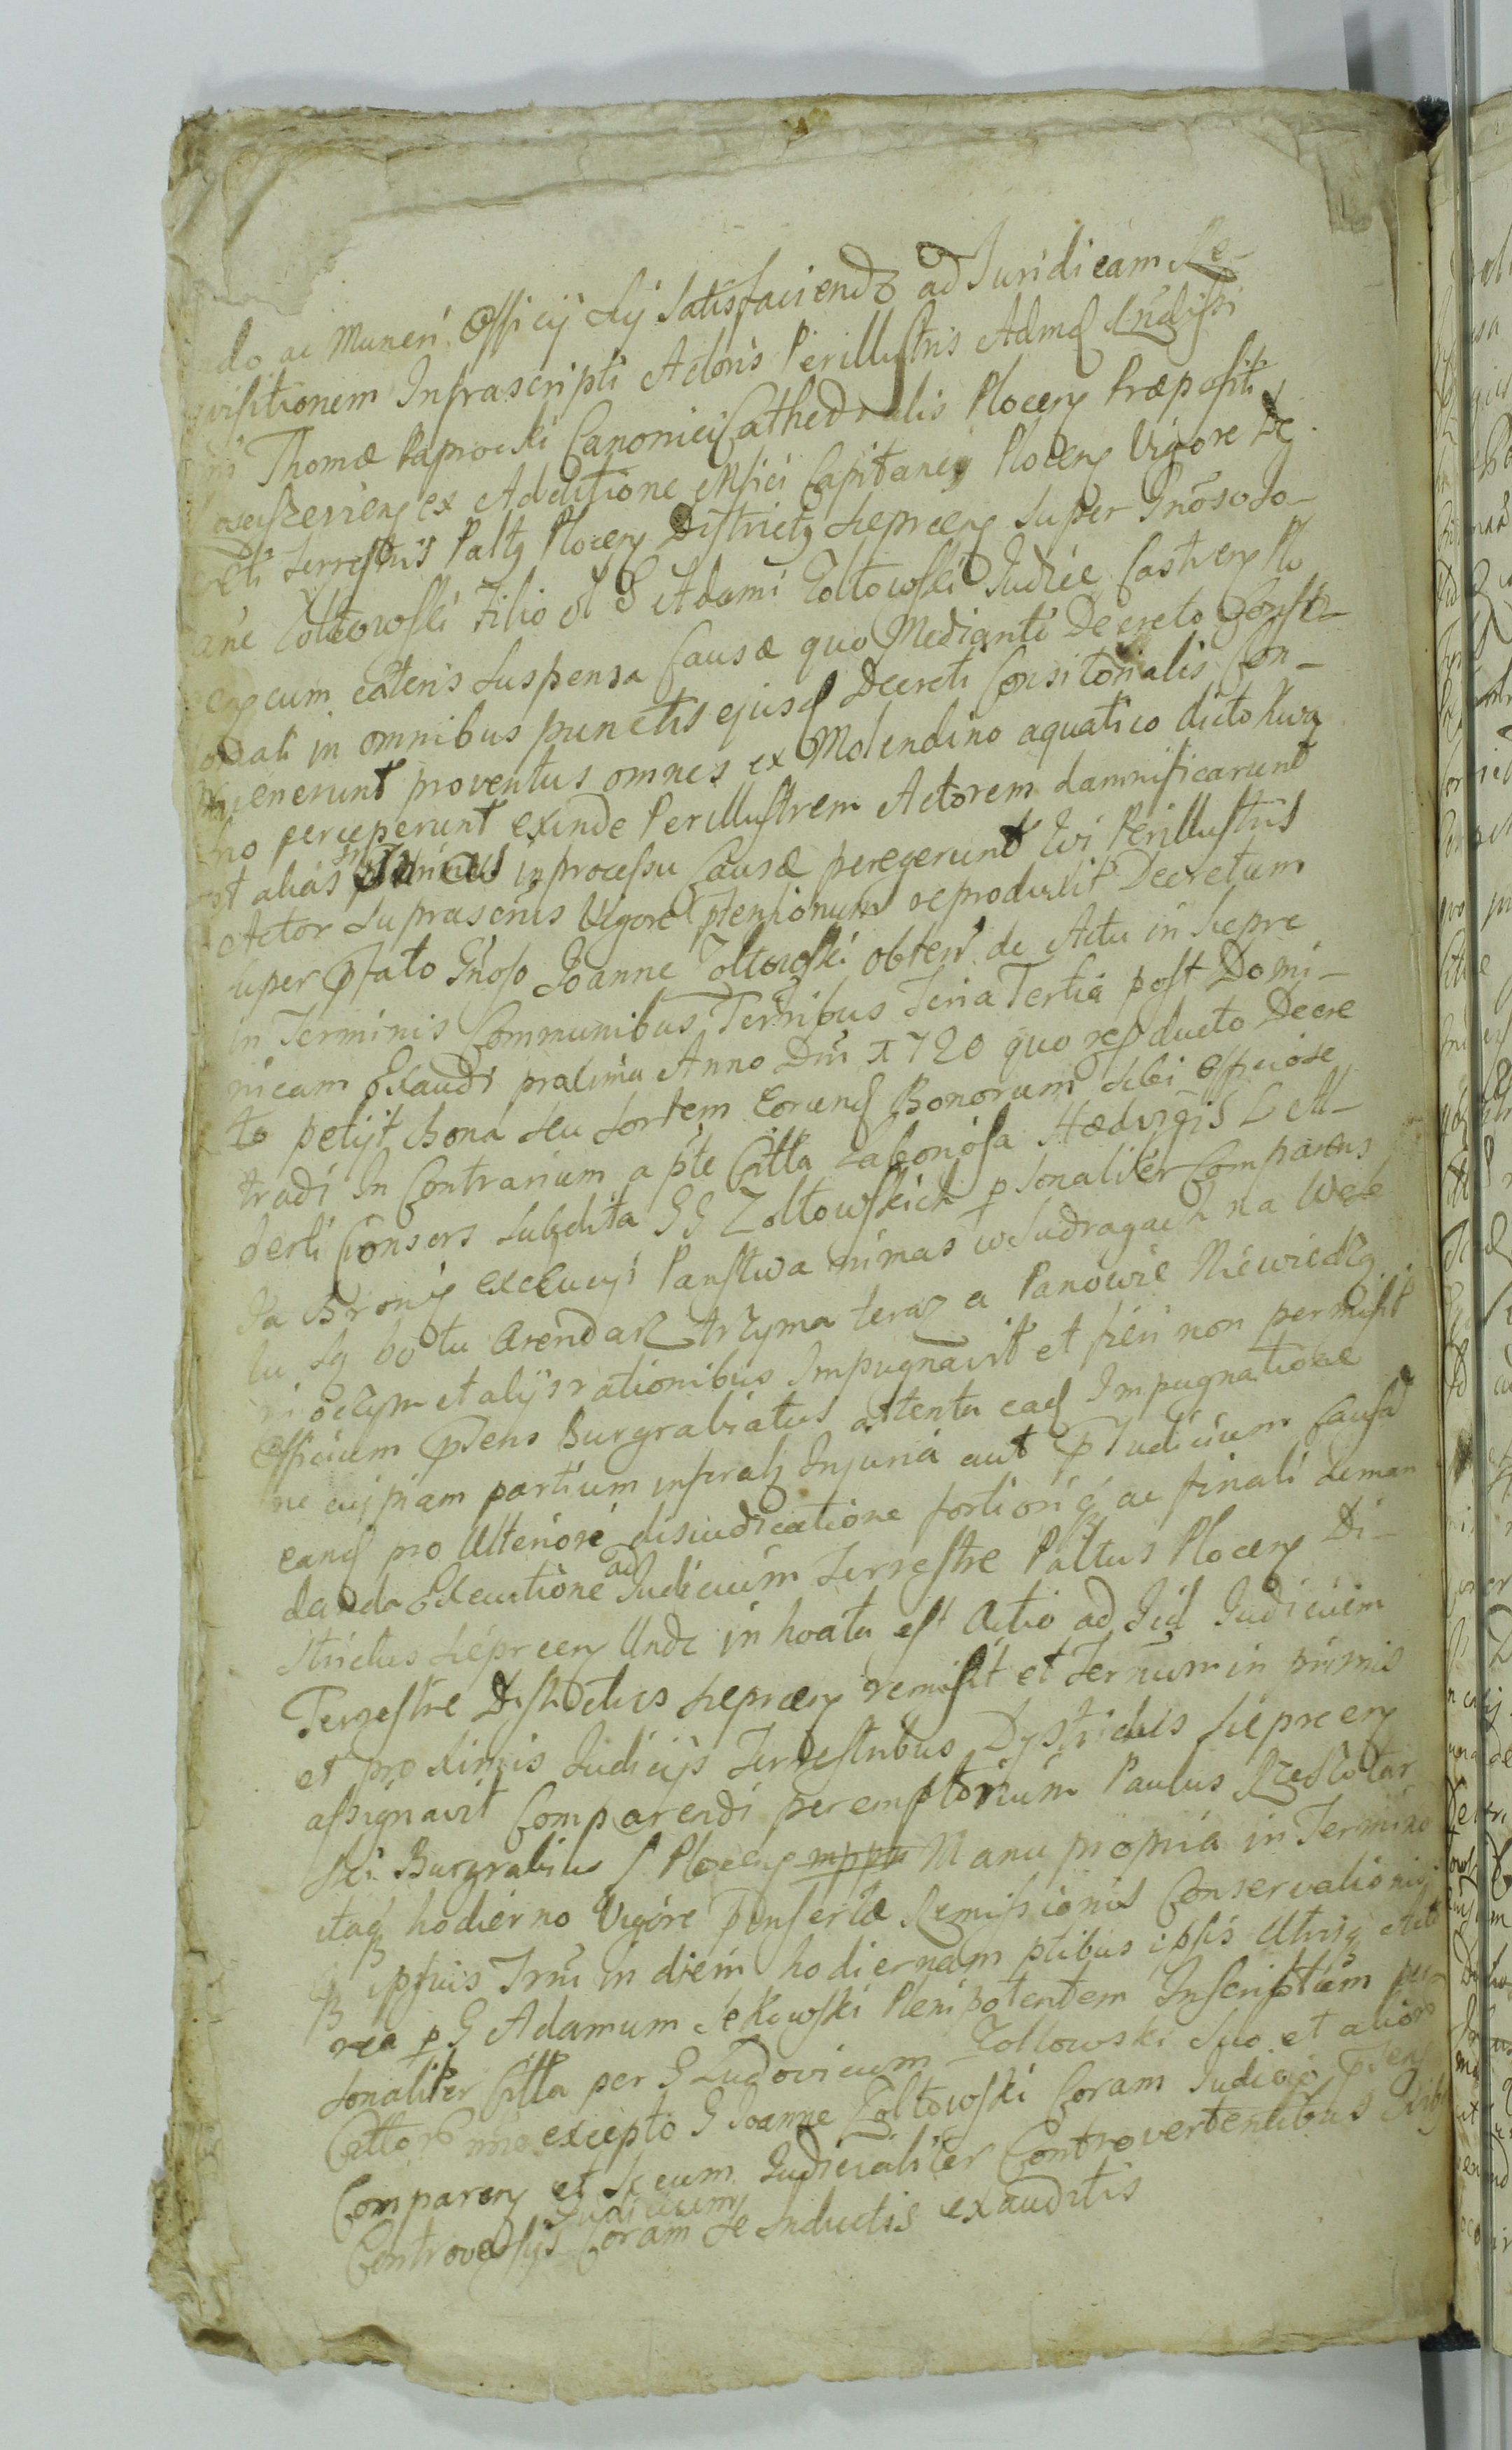 do ac Muneri Officij Sui Satisfaciendo ad Juridicam Re-
quisitionem Infrascripti Actoris Perillustris Admd Rndissi
Thomæ Paprocki Canonici Cathedralis Plocen Præpositi
ex Additione Offici Capitanej Plocen Vigore De
creti Terrestris Palty Plocen Districtg Sieprcen Super Gnoso Jo-
anne Zołtowski Filio olG Adami Zołtowski Judice Castren Plo
cen cum cæteris Suspensa Causæ quo Mediante Decreto
in omnibus punctis ejusd Decreti Consitorialis Con-
venerunt proventus omnes ex Molendino aquatico dicto Kwa
sno perceperunt exinde Perillustrem Actorem damnificarunt
et alias in processu Causæ peregerunt Ibi Perillustris
Actor Suprascriis Vigore ptensionum reproduxit Decretum
super pfato Gnoso Joanne Zołtowski obten de Actu in Sieprc
in Terminis Communibus Terribus Feria Tertia post Domi-
nicam Exaudi proxima Anno Dni 1720 quo reproducto Decre
to petijt Bona seu Sortem Eorund Bonorum Sibi Officiose
tradi In Contrarium a pte Citta Laboriosa Hedvigis
Consors Subdita GG Zołtowskich psonaliter Comparens
Ja Bronię Execucyi Panstwa nimas w Sudragach na Wese
lu są bo tu arendarz trzyma teraz a Panowie Niewiedzą
ni oczym et alijs rationibus Impugnavit et fieri non permisit
Officium psens Burgrabiatus attenta ead Impugnatione
ne cujpiam partium inferatz Injuria aut pJudicium Causã
eand pro Ulteriori disiudicatione fortiori q ac finali deman
danda Executione ad Judicium Terrestre Paltus Plocen Di-
strictus Sieprcen Unde inhoata est Actio ad Jid Judicium
Terrestre Districtus Sieprcen remisit et Ternum in primis
et proximis Judicijs Terrestribus Dystrictus Sieprcen
assignavit Comparendi peremptorium Paulus Rzeszotar
ski Burgrabius S Plocen mppa Manu propria in Termino
itaq hodierno Vigore pinsertæ Remissionis Conservationis
q ipsius Trni in diem hodiernam ptibus ipsis Utrisq Acto
rea p G Adamum Sękowski Plenipotentem Inscriptum per
sonaliter Citta per G Ludovicum Zołtowski Suo et alior
Cittor noie excepto G Joanne Zołtowski Coram Judicio psen
Comparen et Secum Judicialiter Controvertentibus
Judicium
Controversijs Coram Se Inductis exauditis